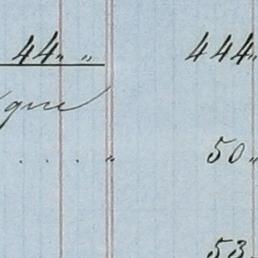 44 " " 444 "
gne
. . . . " 50 "
53 "